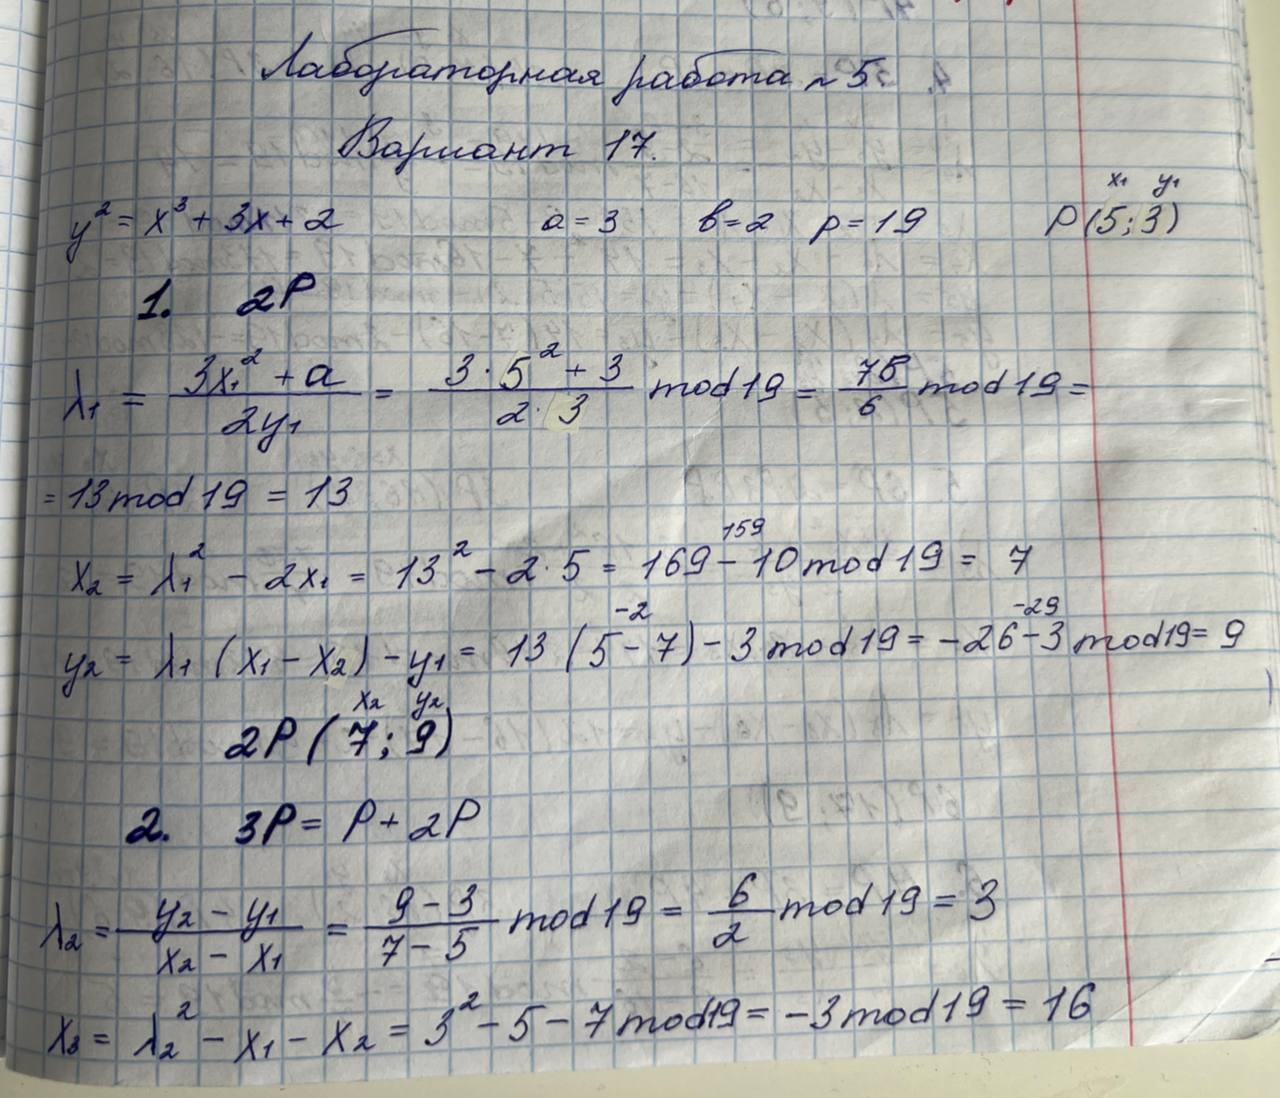 Лабораторная работа ~ 5
Вариант 17.
y² = x³ + 3x + 2 a = 3 b = 2 p = 19 P(5; 3)
x₁ y₁
1. 2P
λ₁ = (3x₁² + a)/(2y₁) = (3·5² + 3)/(2·3) mod 19 = 78/6 mod 19 =
= 13 mod 19 = 13
159
x₂ = λ₁² - 2x₁ = 13² - 2·5 = 169 - 10 mod 19 = 7
-2 -29
y₂ = λ₁ (x₁ - x₂) - y₁ = 13 (5 - 7) - 3 mod 19 = -26 - 3 mod 19 = 9
x₂ y₂
2P (7; 9)
2. 3P = P + 2P
λ₂ = (y₂ - y₁)/(x₂ - x₁) = (9 - 3)/(7 - 5) mod 19 = 6/2 mod 19 = 3
x₃ = λ₂² - x₁ - x₂ = 3² - 5 - 7 mod 19 = -3 mod 19 = 16